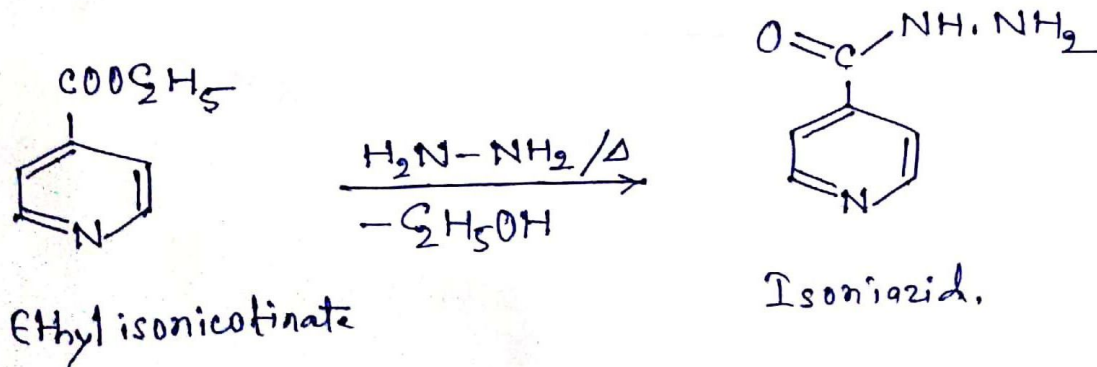 COOC2H5
N
Ethyl isonicotinate
H2N-NH2/Δ
-C2H5OH
O
C
NH.NH2
N
Isoniazid.